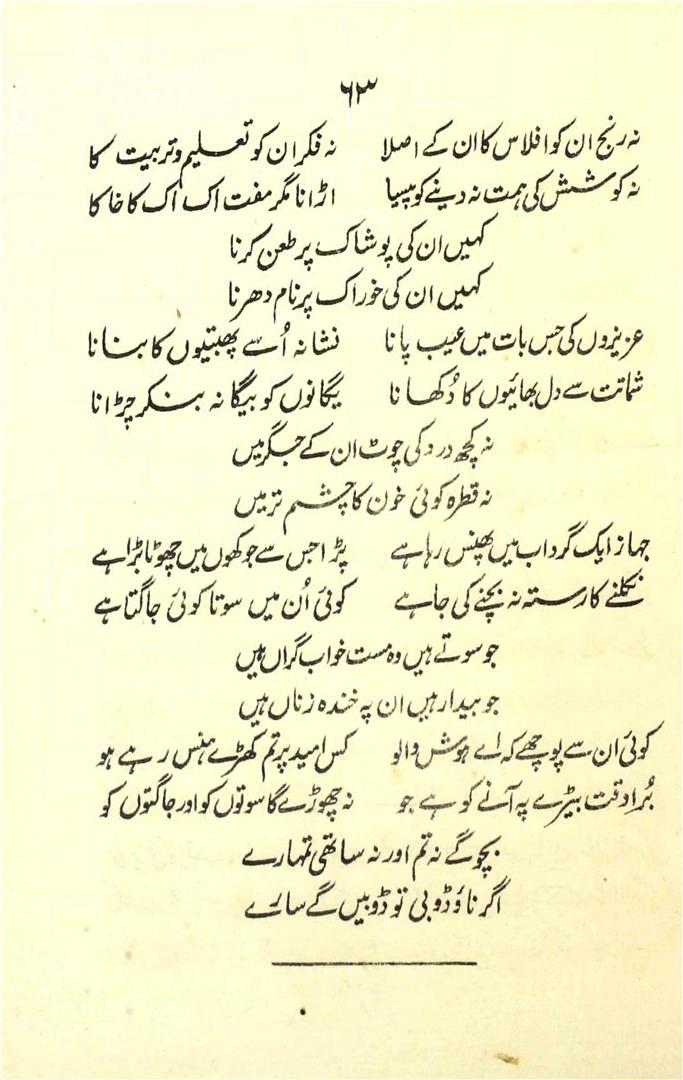 ۶۳
نہ رنج ان کو افلاس کا ان کے اصلا نہ فکر ان کو تعلیم و تربیت کا
نہ کوشش کی ہمت نہ دینے کو پیسا اڑانا مگر مفت اک اک کا خاکا
کہیں ان کی پوشاک پر طعن کرنا
کہیں ان کی خوراک پر نام دھرنا
عزیزوں کی جس بات میں عیب پانا نشانہ اُسے پھبتیوں کا بنانا
شماتت سے دل بھائیوں کا دُکھانا یگانوں کو بیگانہ بنکر چڑانا
نہ کچھ درد کی چوٹ ان کے جگر میں
نہ قطرہ کوئی خون کا چشم تر میں
جہاز ایک گرداب میں پھنس رہا ہے پڑا جس سے جوکھوں میں چھوٹا بڑا ہے
نکلنے کا رستہ نہ بچنے کی جا ہے کوئی اُن میں سوتا کوئی جاگتا ہے
جو سوتے ہیں وہ مست خواب گراں ہیں
جو بیدار ہیں ان پہ خندہ زناں ہیں
کوئی ان سے پوچھے کہ اے ہوش والو کس امید پر تم کھڑے ہنس رہے ہو
بُرا وقت بیڑے پہ آنے کو ہے جو نہ چھوڑے گا سوتوں کو اور جاگتوں کو
بچوگے نہ تم اور نہ ساتھی تمہارے
اگر ناؤ ڈوبی تو ڈوبیں گے سارے